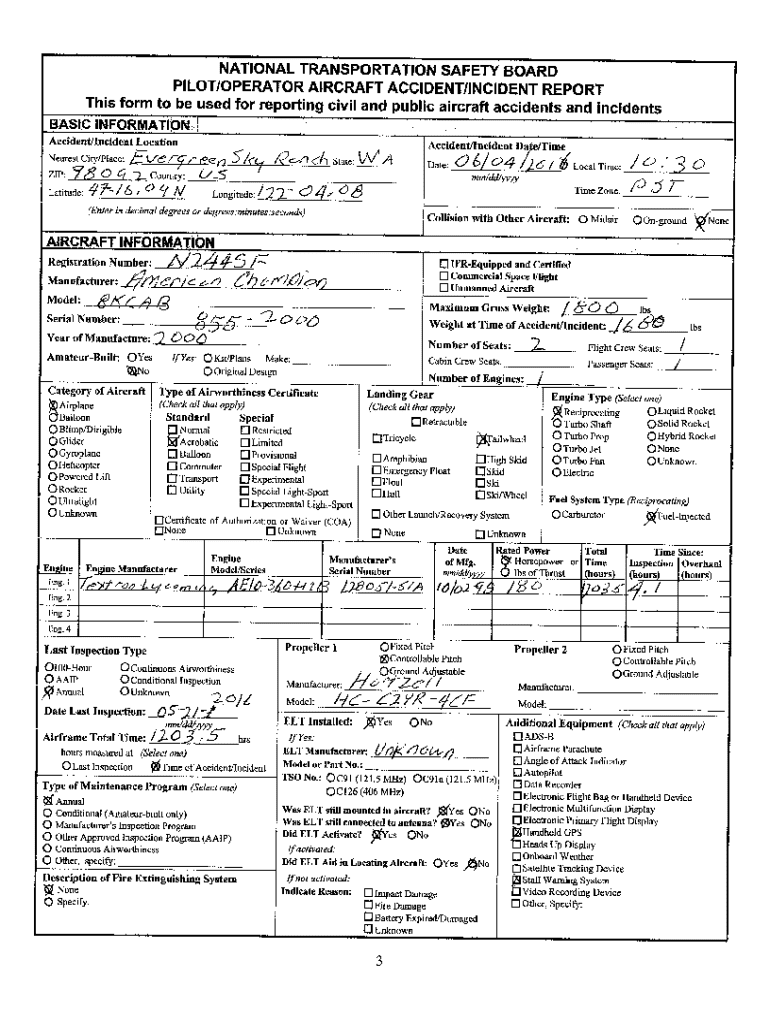 NATIONAL TRANSPORTATION SAFETY BOARD
PILOT/OPERATOR AIRCRAFT ACCIDENT/INCIDENT REPORT
This form to be used for reporting civil and public aircraft accidents and incidents
BASIC INFORMATION
Accident/Incident Location
Nearest City/Place: Evergreen Sky Ranch State: WA
ZIP: 98092 Country: US
Latitude: 47-16.04N Longitude: 122-04.08
(Enter in decimal degrees or degrees:minutes:seconds)
Accident/Incident Date/Time
Date: 06/04/2016 Local Time: 10:30
mm/dd/yyyy
Time Zone: PST
Collision with Other Aircraft: Midair On-ground None
AIRCRAFT INFORMATION
Registration Number: N244SF
Manufacturer: American Champion
Model: 8KCAB
Serial Number: 855-2000
Year of Manufacture: 2000
Amateur-Built: Yes If Yes: Kit/Plans Make:
No Original Design
IFR-Equipped and Certified
Commercial Space Flight
Unmanned Aircraft
Maximum Gross Weight: 1800 lbs
Weight at Time of Accident/Incident: 1680 lbs
Number of Seats: 2 Flight Crew Seats: 1
Cabin Crew Seats: Passenger Seats: 1
Number of Engines: 1
Category of Aircraft
Airplane
Balloon
Blimp/Dirigible
Glider
Gyroplane
Helicopter
Powered Lift
Rocket
Ultralight
Unknown
Type of Airworthiness Certificate
(Check all that apply)
Standard Special
Normal Restricted
Acrobatic Limited
Balloon Provisional
Commuter Special Flight
Transport Experimental
Utility Special Light-Sport
Experimental Light-Sport
Certificate of Authorization or Waiver (COA)
None Unknown
Landing Gear
(Check all that apply)
Retractable
Tricycle Tailwheel
Amphibian High Skid
Emergency Float Skid
Float Ski
Hull Ski/Wheel
Other Launch/Recovery System
None Unknown
Engine Type (Select one)
Reciprocating Liquid Rocket
Turbo Shaft Solid Rocket
Turbo Prop Hybrid Rocket
Turbo Jet None
Turbo Fan Unknown
Electric
Fuel System Type (Reciprocating)
Carburetor Fuel-Injected
Engine Engine Manufacturer Engine Model/Series Manufacturer's Serial Number Date of Mfg. mm/dd/yyyy Rated Power Horsepower or lbs of Thrust Total Time (hours) Time Since: Inspection (hours) Overhaul (hours)
Eng. 1 Textron Lycoming AEIO-360-H1B 180
Eng. 2
Eng. 3
Eng. 4
Last Inspection Type
100-Hour Continuous Airworthiness
AAIP Conditional Inspection
Annual Unknown
2016
Date Last Inspection: 05-21-
mm/dd/yyyy
Airframe Total Time: 1203.5 hrs
hours measured at (Select one)
Last Inspection Time of Accident/Incident
Type of Maintenance Program (Select one)
Annual
Conditional (Amateur-built only)
Manufacturer's Inspection Program
Other Approved Inspection Program (AAIP)
Continuous Airworthiness
Other, specify:
Description of Fire Extinguishing System
None
Specify:
Propeller 1 Fixed Pitch
Controllable Pitch
Ground Adjustable
Manufacturer: Hartzell
Model: HC-C2YR-4CF
ELT Installed: Yes No
If Yes:
ELT Manufacturer: Unknown
Model or Part No.:
TSO No.: C91 (121.5 MHz) C91a (121.5 MHz)
C126 (406 MHz)
Was ELT still mounted in aircraft? Yes No
Was ELT still connected to antenna? Yes No
Did ELT Activate? Yes No
If activated:
Did ELT Aid in Locating Aircraft: Yes No
If not activated:
Indicate Reason: Impact Damage
Fire Damage
Battery Expired/Damaged
Unknown
Propeller 2 Fixed Pitch
Controllable Pitch
Ground Adjustable
Manufacturer:
Model:
Additional Equipment (Check all that apply)
ADS-B
Airframe Parachute
Angle of Attack Indicator
Autopilot
Data Recorder
Electronic Flight Bag or Handheld Device
Electronic Multifunction Display
Electronic Primary Flight Display
Handheld GPS
Heads Up Display
Onboard Weather
Satellite Tracking Device
Stall Warning System
Video Recording Device
Other, Specify:
3